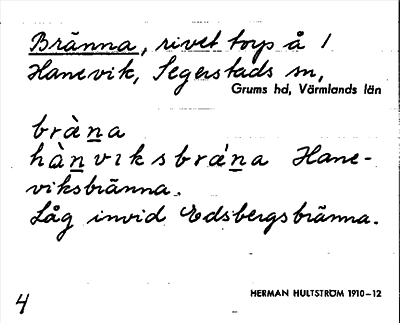 Bränna, rivet torp å 1
Hanevik, Segerstads sn,
Grums hd, Värmlands län
bràna
hànviksbrána Hane-
viksbränna.
Låg invid Edsbergsbränna.
4
HERMAN HULTSTRÖM 1910-12